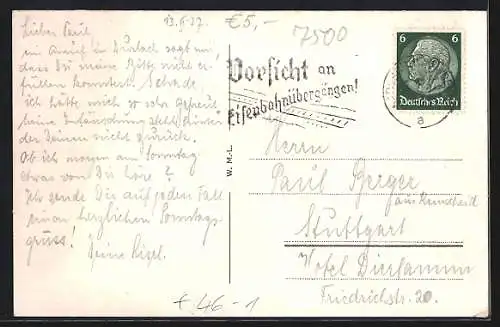 13.6.37. €5,-
7500
Lieber Paul,
ein Anruf in Durlach sagt mir
dass Du meine Bitte nicht er-
füllen konntest. Schade,
ich hatte mich so sehr gefreut
meine Enttäuschung steht hinter
der Deinen nicht zurück.
Ob ich morgen am Sonntag
etwas von Dir höre?
Ich sende Dir auf jeden Fall
einen herzlichen Sonntags-
gruss!
Deine Lisel.
Vorsicht an
Eisenbahnübergängen!
6 6
Deutsches Reich
a
W. M.-L.
Herrn
Paul Berger
aus Remscheid
Stuttgart
Hotel Dierlamm
Friedrichstr. 20.
+ 46-1